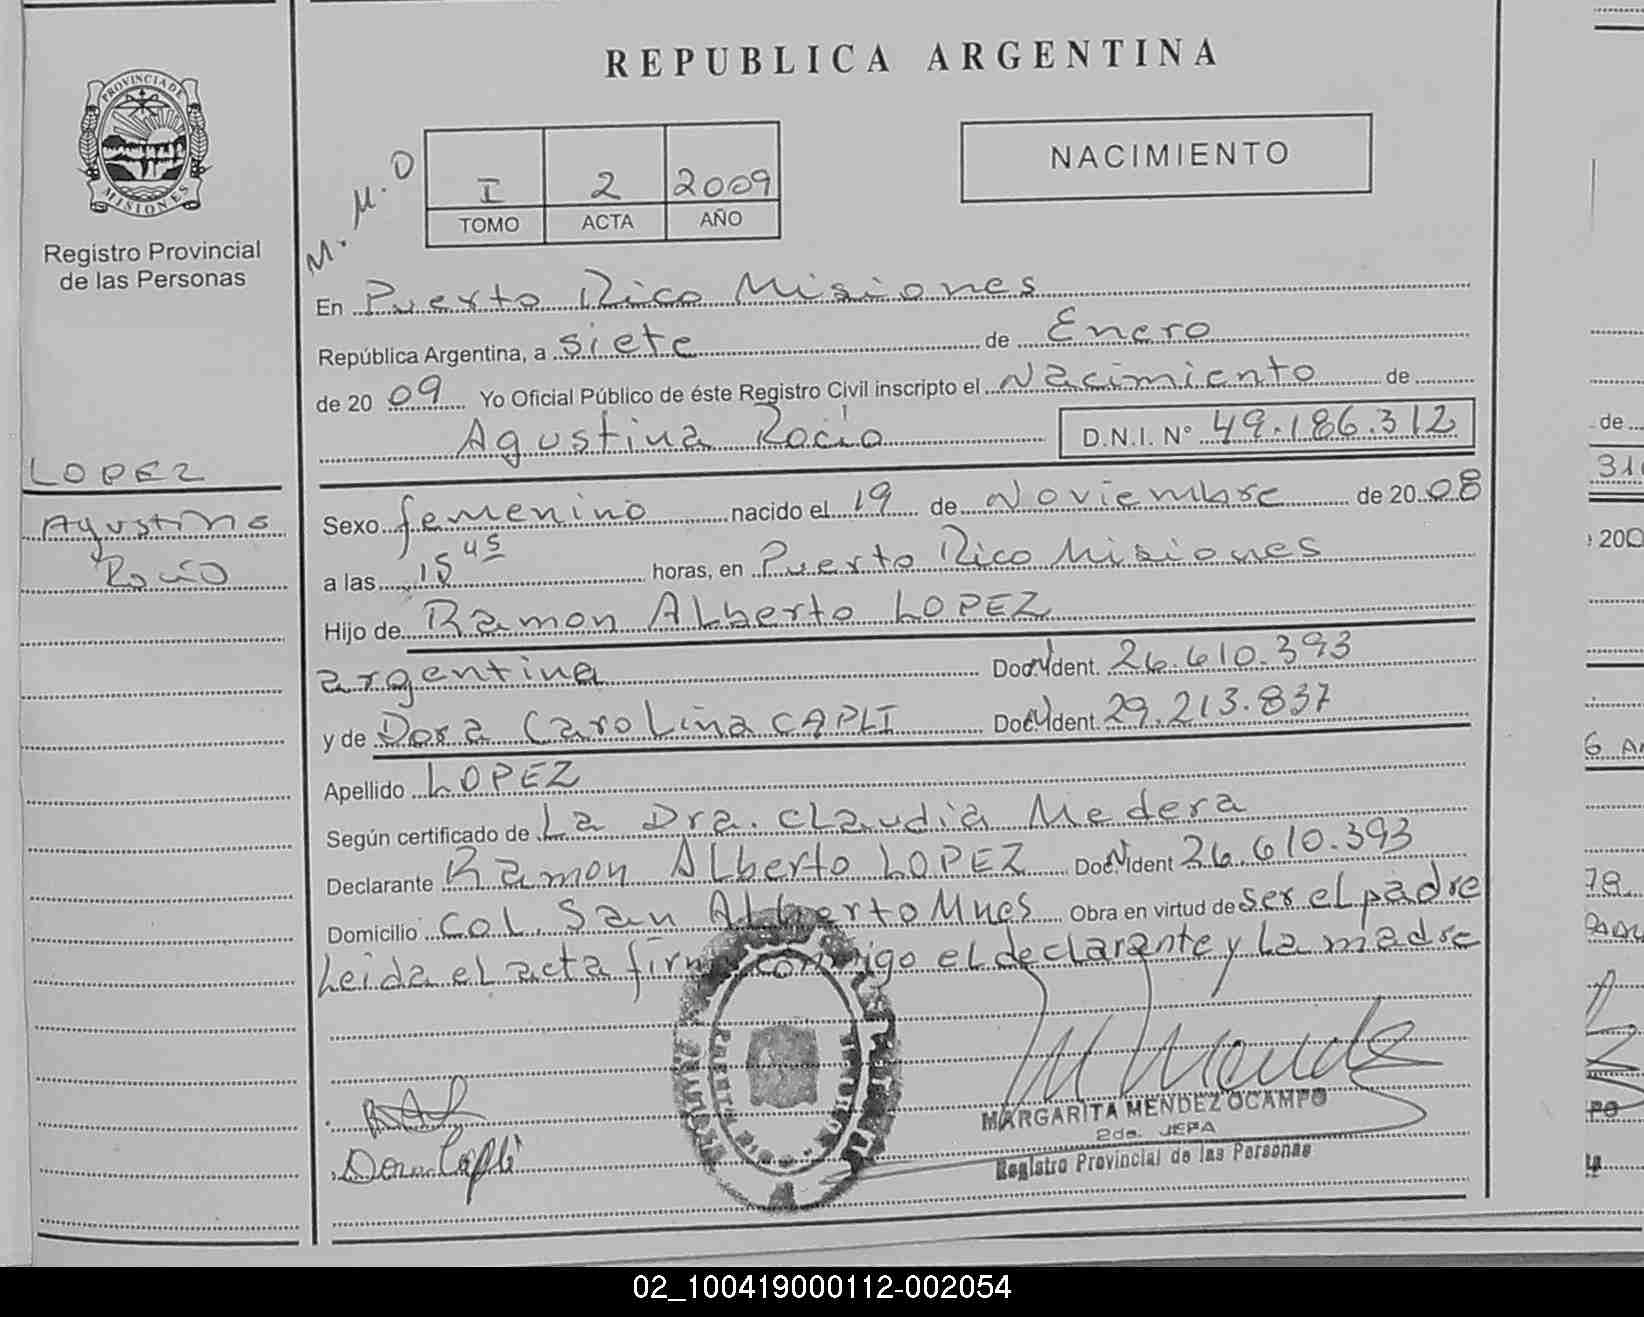 REPUBLICA ARGENTINA
PROVINCIA DE
MISIONES
Registro Provincial
de las Personas
M. M. O
I 2 2009
TOMO ACTA AÑO
NACIMIENTO
En Puerto Rico Misiones
República Argentina, a siete de Enero
de 20 09 Yo Oficial Público de éste Registro Civil inscripto el Nacimiento de
Agustina Rocío D.N.I. N° 49.186.312
LOPEZ
Agustina
Rocío
Sexo femenino nacido el 19 de Noviembre de 20 08
a las 15 45 horas, en Puerto Rico Misiones
Hijo de Ramon Alberto LOPEZ
argentina Doc. Ident. 26.610.393
y de Dora Carolina CAPLI Doc. Ident. 29.213.837
Apellido LOPEZ
Según certificado de La Dra. Claudia Medera
Declarante Ramon Alberto LOPEZ Doc. Ident 26.610.393
Domicilio Col. San Alberto Mnes Obra en virtud de ser el padre
Leida el acta firma conmigo el declarante y La madre
Dora Capli
MARGARITA MENDEZ OCAMPO
2da. JEFA
Registro Provincial de las Personas
02_100419000112-002054